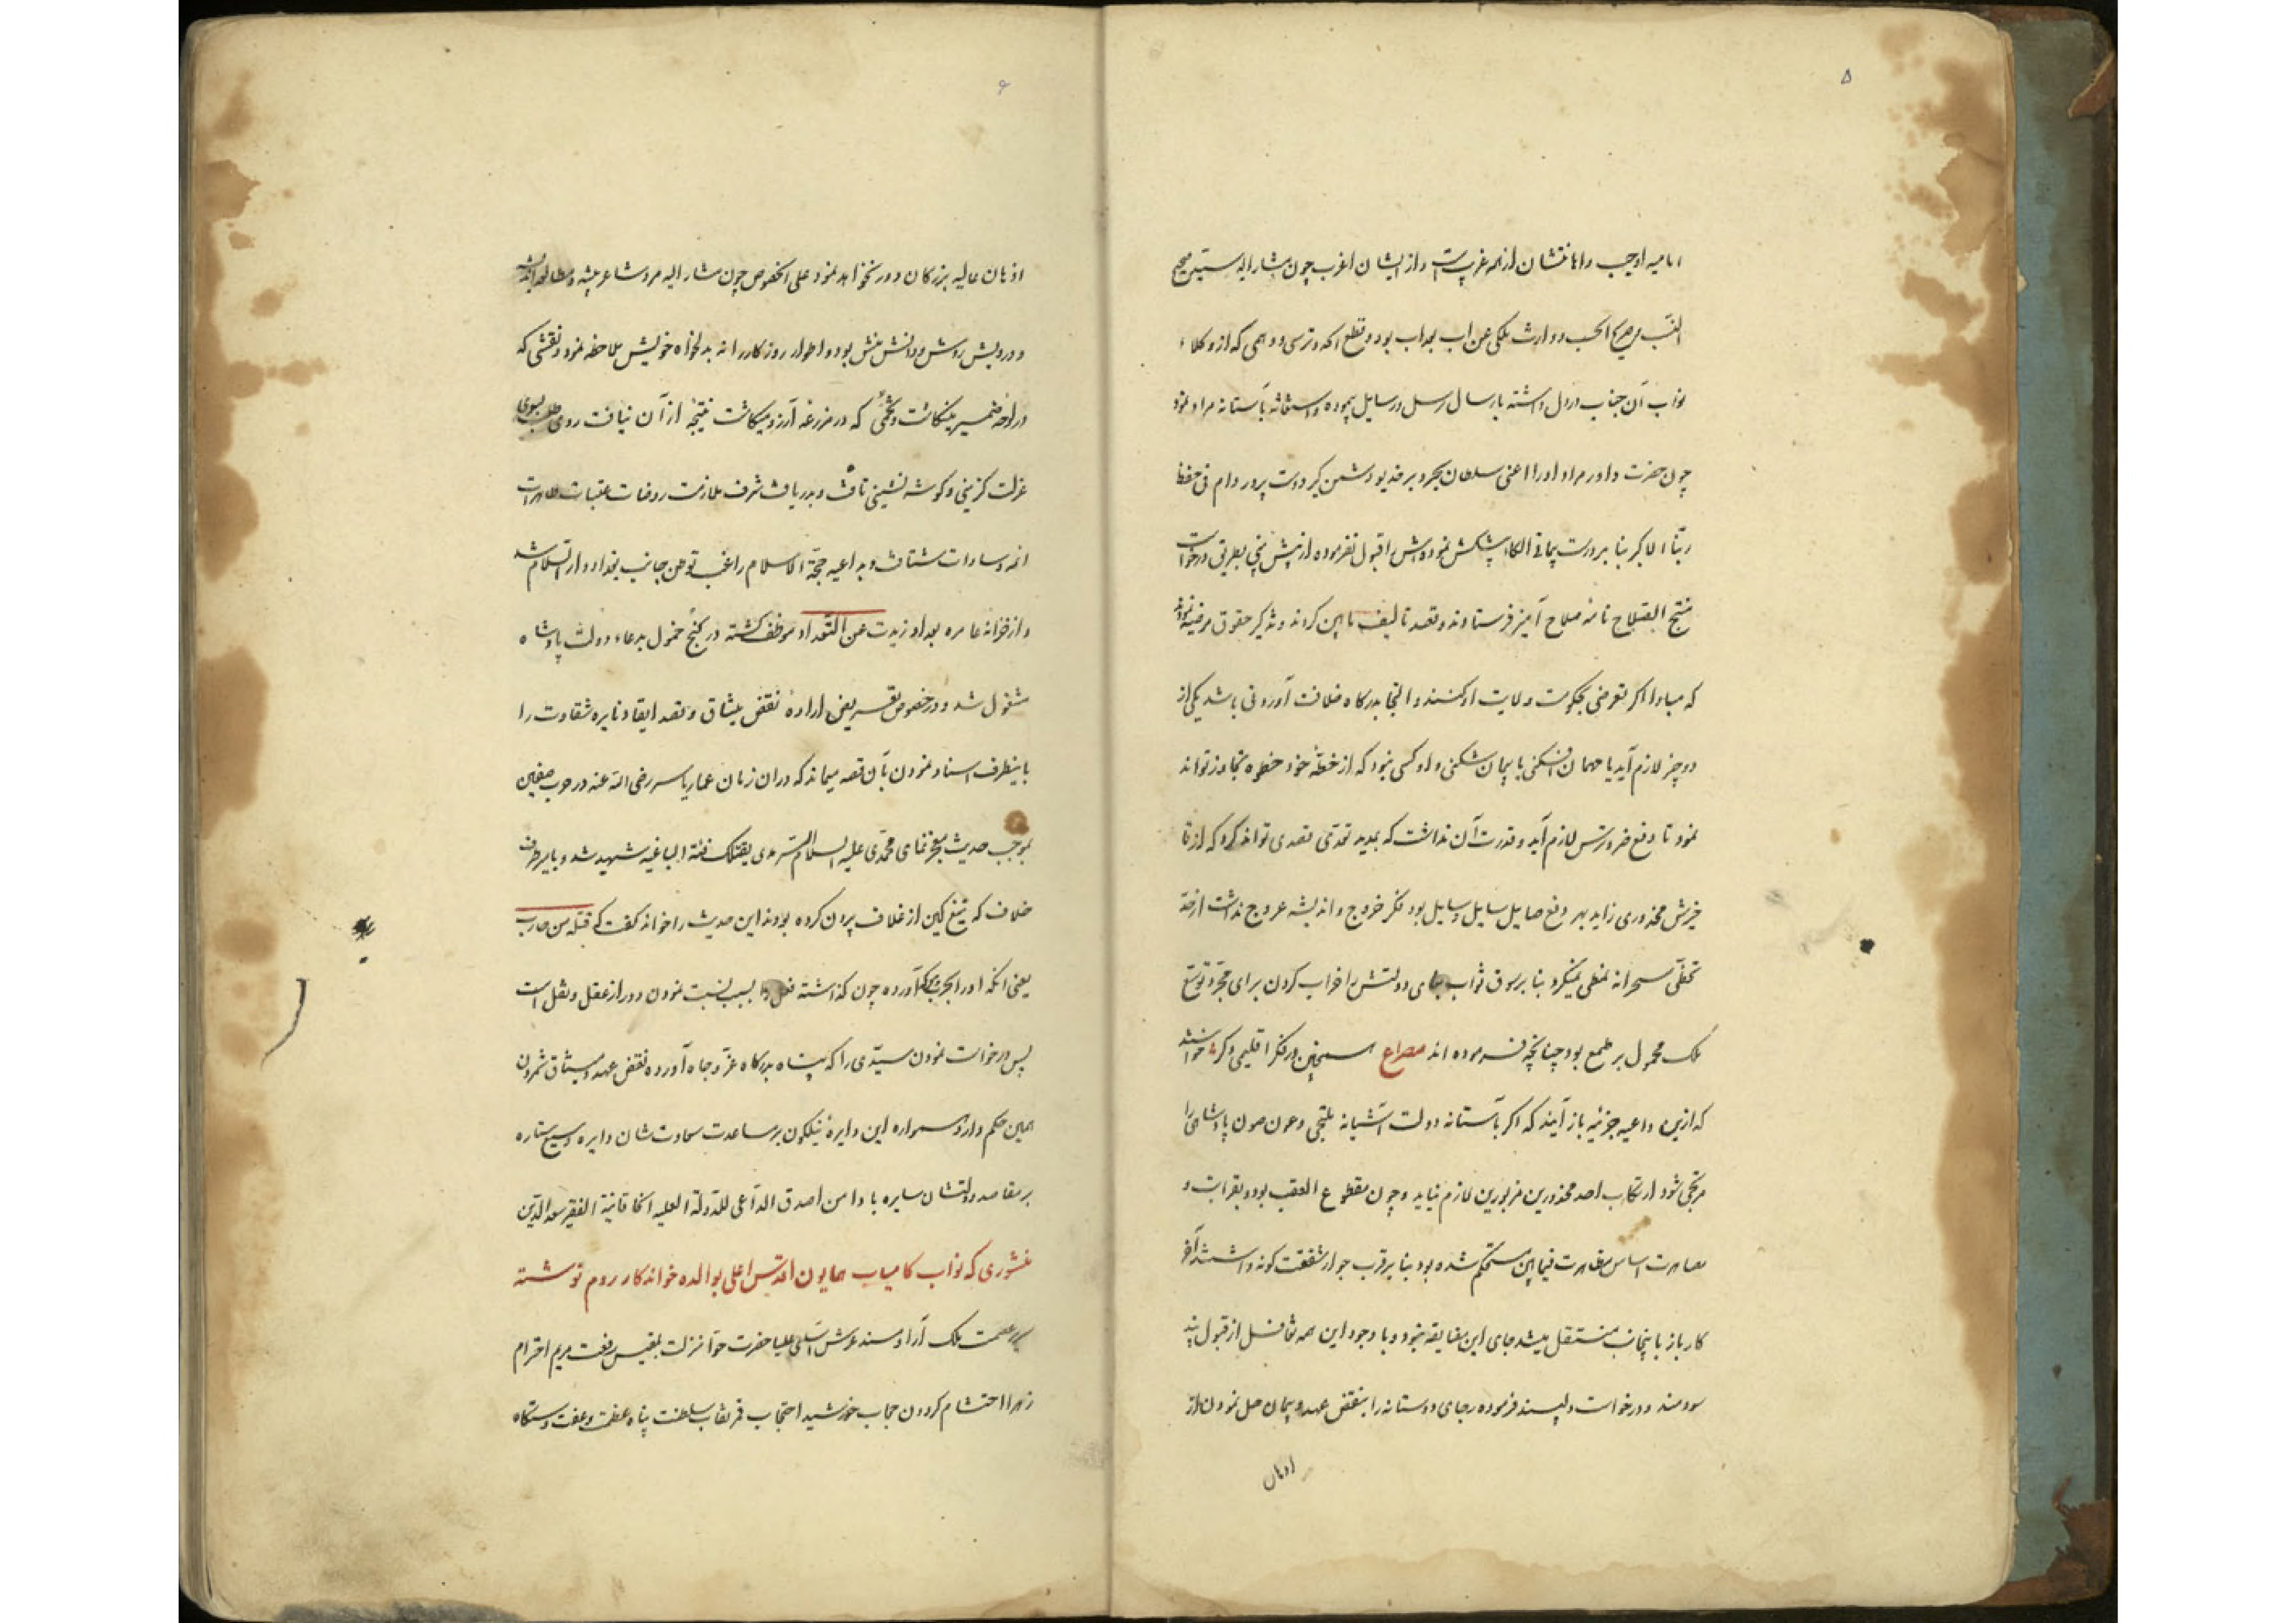 ۵
امامیه اوجب دانا نشان از همه غریب است و از ایشان اغرب چون مشار الیه سیتین صحیح
النسب صریح الحسب و وارث ملکی عن اب بعد اب بود و قطع آنکه ترسی و وهمی که از وکلاء
نواب آن جناب در دل داشته بارسال رسل و رسایل پیموده و استغاثه بآستانه مراد نمود
چون حضرت داور مراد او را اعنی سلطان بحر و بر خدیو دشمن گیر دوست پرور دام فی حفظ
ربنا الاکبر بنا بر درست پیمانی الکاء پیشکش نموده‌اش قبول نفرموده از پیش
منتج الصلاح نامهٔ صلاح آمیز فرستادند و قصد تالیف مابین کردند و تذکیر حقوق مرضیه نمودند
که مبادا اگر تعرضی بحکومت ولایت او کنند و التجا بدرگاه خلافت آوردنی باشد یکی از
دو چیز لازم آید یا مهمان افکنی یا پیمان شکنی و او کسی نبود که از خطهٔ خود خطوه تجاوز تواند
نمود تا دفع ضررش لازم آید و قدرت آن نداشت که بمدید تعدی تصدی تواند کرد که از ناخیزش محذوری زاید بهر دفع صایل سایل وسایل بود فکر خروج و اندیشه عروج نداشت از خد
تخطی مسخرانه لمظی نمیکرد بنا بر سوق ثواب بنای دولتش را خراب کردن برای مجرد توسع
ملک محمول بر طمع بود چنانچه فرموده اند مصراع همچنین در فکر اقلیمی دگر خواستند
که ازین داعیه جزئیه باز آیند که اگر بآستانه دولت آشیانه ملتجی و عون صون پادشاهی را
مرتجی شود ارتکاب احد محذورین مزبورین لازم نیاید و چون مقطوع العقب بود و بقرابت و
مصاهرت اساس مظاهرت فیمابین مستحکم شده بود بنا بر قرب جوار شفقت گونه داشتند آخر
کار باز باینجانب منتقل میشد جای این مضایقه نبود و با وجود این همه تغافل از قبول پند
سودمند و درخواست دلپسند فرموده رجای دوستانه را بنقض عهد و پیمان حمل نمودن از
اذهان
۶
اذهان عالیه بزرگان دور نخواهد نمود علی الخصوص چون مشار الیه مرد شاعر پیشه و مطالعه اندیشه
و درویش روش و دانش منش بود و اطوار روزگار را نه بدلخواه خویش ملاحظه نمود و نقشی که
در لوحهٔ ضمیر مینگاشت و تخمی که در مزرعهٔ آرزو میکاشت نتیجهٔ از آن نیافت روی طلب بسوی
عزلت گزینی و گوشه نشینی تافت و بدریافت شرف ملازمت روضات عتبات طاهرات
ائمه و سادات شتافت و بداعیه حجة الاسلام راغب توطن جانب بغداد دار السلام شد
و از خزانه عامره بغداد زیدت عن التعداد موظف گشته در کنج خمول بدعاء دولت پادشاه
مشغول شد و در خصوص تقسیر یعنی ارادهٔ نقض میثاق و قصد ایقاد نایره شقاوت را
باینطرف اسناد نمودن بآن قصه میماند که در آن زمان عمار یاسر رضی الله عنه در حرب صفین
بموجب حدیث معجز نمای محمدی علیه السلام السرمدی یقتلک فئة الباغیه شهید شد و با بر طرف
خلاف که تیغ کین از غلاف برون کرده بودند این حدیث را خواند گفت که قتله من حارب
یعنی انکه او را بحرب آورده چون گذاشته فعل را بسبب نسبت نمودن دور از عقل و نقل است
پس درخواست نمودن سیدی را که پناه بدرگاه عز و جاه آورده نقض عهد و میثاق شمردن
همین حکم دارد همواره این دایرهٔ نیلگون بر مساعدت سعادت شان دایره و سبع ستاره
بر مقاصد دولتشان سایره باد امن اصدق الداعی للدولة العلیه الخاقانیة الفقیر سعد الدین
منشوری که نواب کامیاب همایون اقدس اعلی بوالده خواندکار روم نوشته
عصمت ملک آرا و مسند عرش آسای علیا حضرت حوا منزلت بلقیس رفعت مریم احترام
زهرا احتشام گردون حجاب خورشید احتجاب قمر نقاب سلطنت پناه عظمت و عفت دستگاه